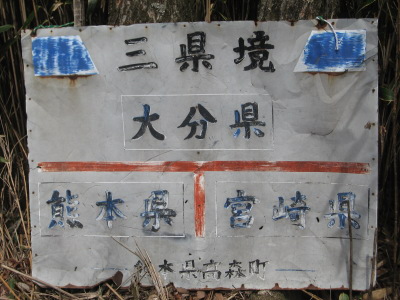 三県境
大分県
熊本県 宮崎県
熊本県高森町